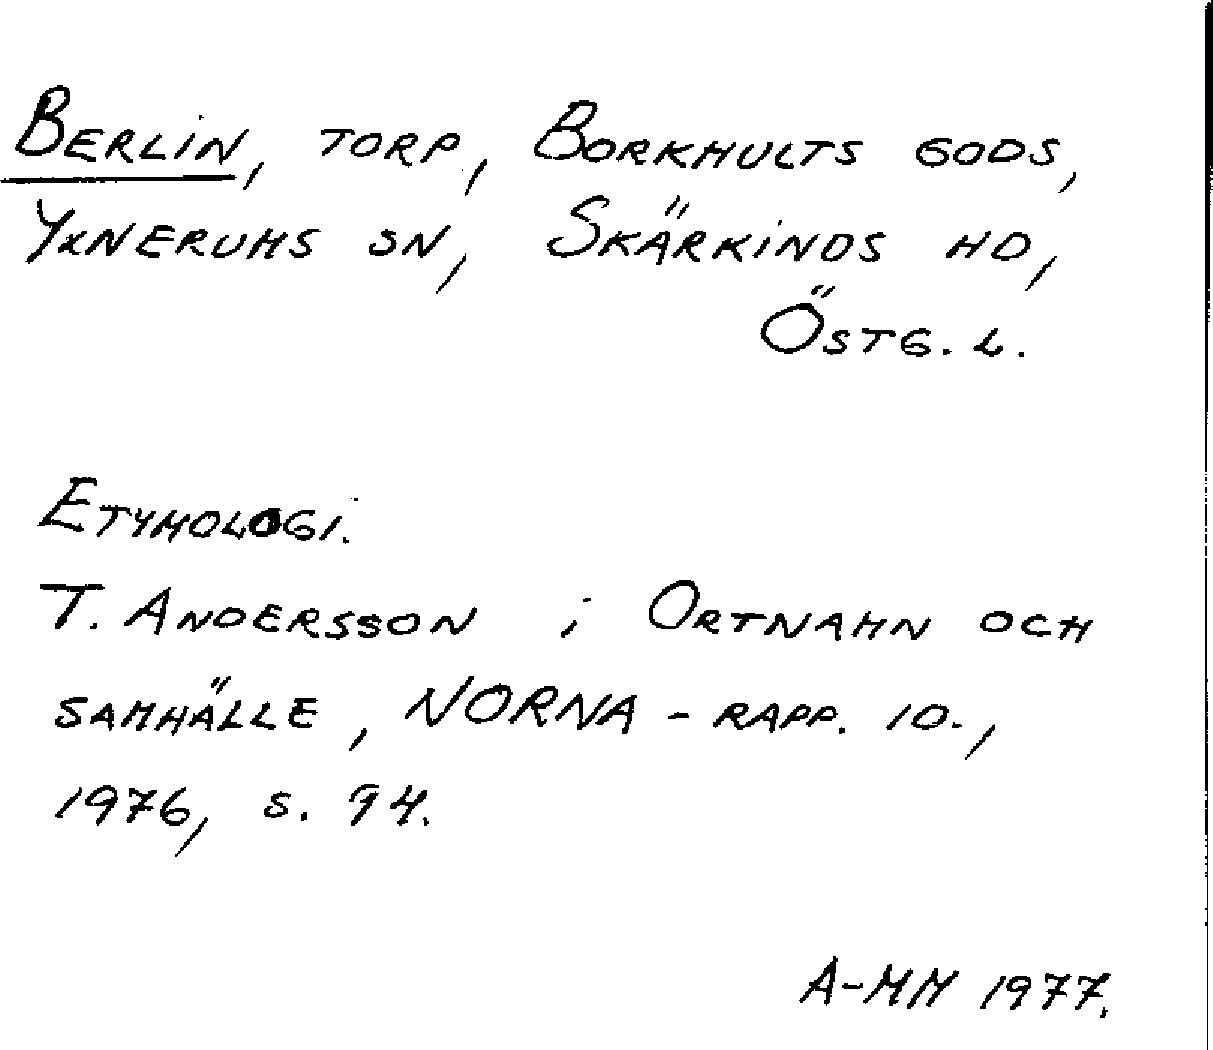 BERLIN, TORP, BORKHULTS GODS,
YXNERUMS SN, SKÄRKINDS HD,
ÖSTG. L.
ETYMOLOGI.
T. ANDERSSON i ORTNAMN OCH
SAMHÄLLE, NORNA-RAPP. 10.,
1976, S. 94.
A-MM 1977.